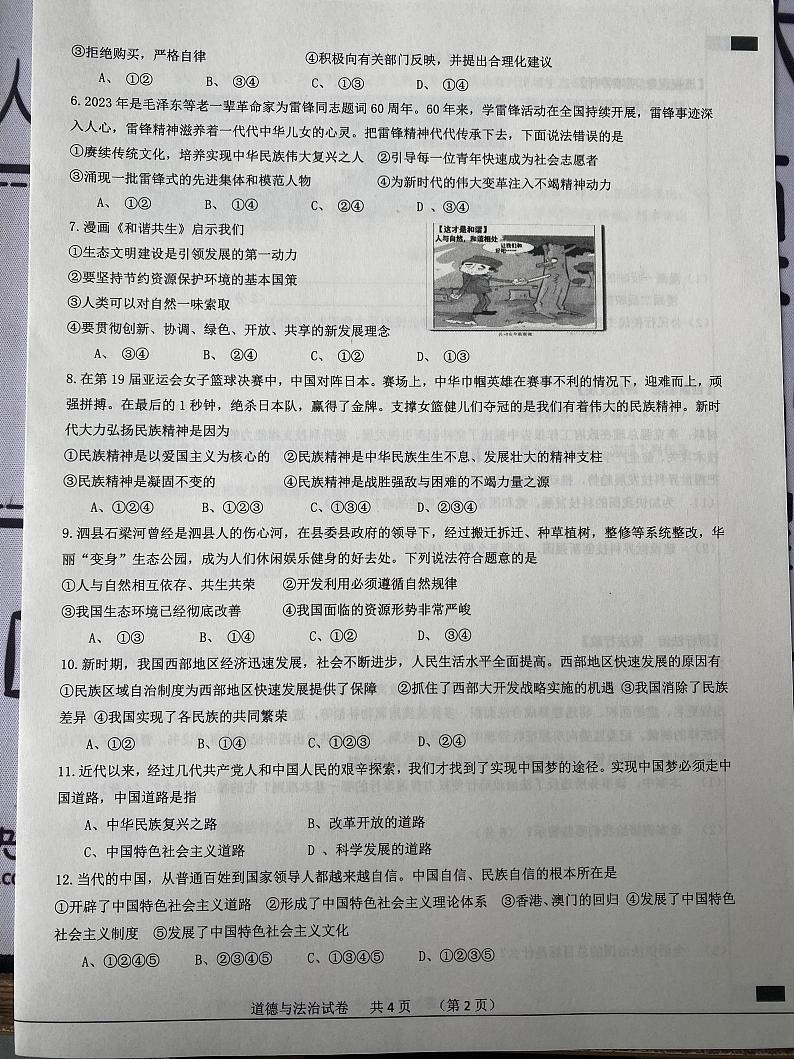 ③拒绝购买，严格自律 ④积极向有关部门反映，并提出合理化建议
A、 ①② B、 ③④ C、 ①③ D、 ①④
6.2023 年是毛泽东等老一辈革命家为雷锋同志题词 60 周年。60 年来，学雷锋活动在全国持续开展，雷锋事迹深
入人心，雷锋精神滋养着一代代中华儿女的心灵。把雷锋精神代代传承下去，下面说法错误的是
①赓续传统文化，培养实现中华民族伟大复兴之人 ②引导每一位青年快速成为社会志愿者
③涌现一批雷锋式的先进集体和模范人物 ④为新时代的伟大变革注入不竭精神动力
A、 ①② B、 ①④ C、 ②④ D 、③④
7.漫画《和谐共生》启示我们
①生态文明建设是引领发展的第一动力
②要坚持节约资源保护环境的基本国策
③人类可以对自然一味索取
④要贯彻创新、协调、绿色、开放、共享的新发展理念
【这才是和谐】
人与自然，和谐相处
A、 ③④ B、 ②④ C、 ①② D、 ①③
8.在第 19 届亚运会女子篮球决赛中，中国对阵日本。赛场上，中华巾帼英雄在赛事不利的情况下，迎难而上，顽
强拼搏。在最后的 1 秒钟，绝杀日本队，赢得了金牌。支撑女篮健儿们夺冠的是我们有着伟大的民族精神。新时
代大力弘扬民族精神是因为
①民族精神是以爱国主义为核心的 ②民族精神是中华民族生生不息、发展壮大的精神支柱
③民族精神是凝固不变的 ④民族精神是战胜强敌与困难的不竭力量之源
A、①②④ B、①②③ C、①③④ D、②③④
9.泗县石梁河曾经是泗县人的伤心河，在县委县政府的领导下，经过搬迁拆迁、种草植树，整修等系统整改，华
丽“变身”生态公园，成为人们休闲娱乐健身的好去处。下列说法符合题意的是
①人与自然相互依存、共生共荣 ②开发利用必须遵循自然规律
③我国生态环境已经彻底改善 ④我国面临的资源形势非常严峻
A、 ①③ B、 ①④ C、①② D、 ③④
10.新时期，我国西部地区经济迅速发展，社会不断进步，人民生活水平全面提高。西部地区快速发展的原因有
①民族区域自治制度为西部地区快速发展提供了保障 ②抓住了西部大开发战略实施的机遇 ③我国消除了民族
差异 ④我国实现了各民族的共同繁荣
A、①② B、①④ C、①②③ D、②④
11.近代以来，经过几代共产党人和中国人民的艰辛探索，我们才找到了实现中国梦的途径。实现中国梦必须走中
国道路，中国道路是指
A、中华民族复兴之路 B、改革开放的道路
C、中国特色社会主义道路 D 、科学发展的道路
12.当代的中国，从普通百姓到国家领导人都越来越自信。中国自信、民族自信的根本所在是
①开辟了中国特色社会主义道路 ②形成了中国特色社会主义理论体系 ③香港、澳门的回归 ④发展了中国特色
社会主义制度 ⑤发展了中国特色社会主义文化
A、①②④⑤ B、②③④⑤ C、①③④⑤ D、①②③⑤
道德与法治试卷 共 4 页 （第 2 页）